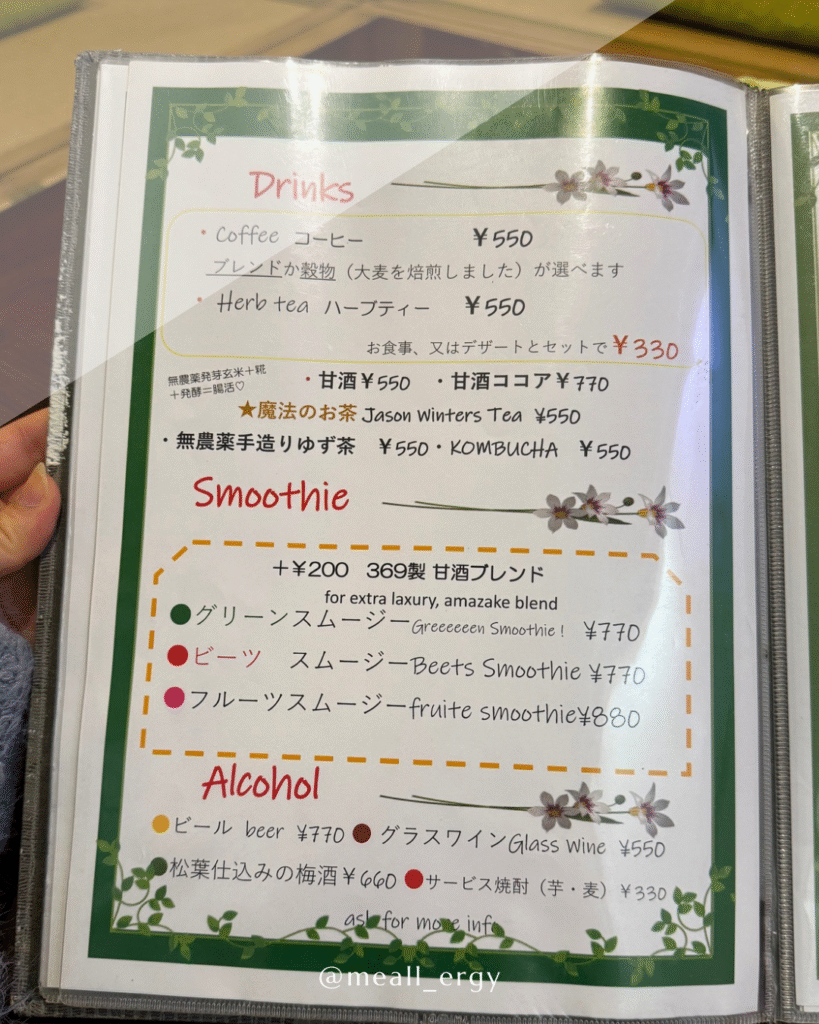 Drinks
・Coffee コーヒー ¥550
ブレンドか穀物（大麦を焙煎しました）が選べます
・Herb tea ハーブティー ¥550
お食事、又はデザートとセットで¥330
無農薬発芽玄米＋糀
＋発酵＝腸活♡
・甘酒¥550 ・甘酒ココア¥770
★魔法のお茶 Jason Winters Tea ¥550
・無農薬手造りゆず茶 ¥550・KOMBUCHA ¥550
Smoothie
＋¥200 369製 甘酒ブレンド
for extra laxury, amazake blend
●グリーンスムージーGreeeeeen Smoothie! ¥770
●ビーツ スムージーBeets Smoothie ¥770
●フルーツスムージーfruite smoothie¥880
Alcohol
●ビール beer ¥770 ●グラスワインGlass Wine ¥550
●松葉仕込みの梅酒¥660 ●サービス焼酎（芋・麦）¥330
ask for more info
@meall_ergy